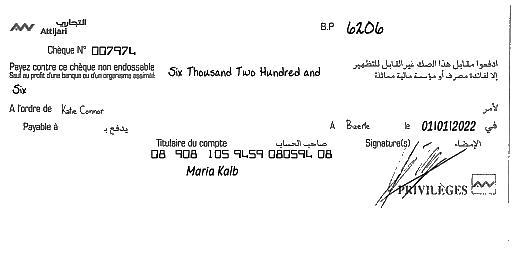 التجاري
Attijari
B.P 6206
Chèque N° 007974
Payez contre ce chèque non endossable
Sauf au profit d'une banque ou d'un organisme assimilé
Six Thousand Two Hundred and
ادفعوا مقابل هذا الصك غير القابل للتظهير
إلا لفائدة مصرف أو مؤسسة مالية مماثلة
Six
A l'ordre de Katie Connor
لأمر
Payable à
يدفع بـ
A Bizerte le 01/01/2022 في
Titulaire du compte صاحب الحساب
Signature(s) الإمضاء
08 908 105 9459 080594 08
Maria Kalb
PRIVILÈGES